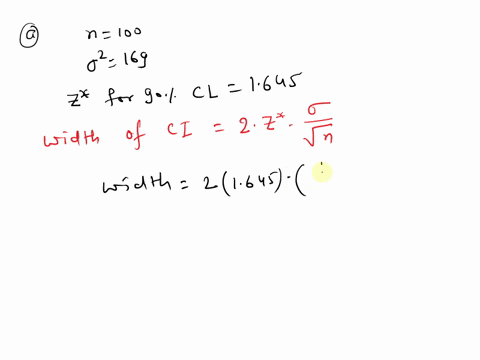 ⓐ n = 100
σ² = 169
Z* for 90% CL = 1.645
width of CI = 2 · Z* · σ/√n
width = 2 (1.645) · (